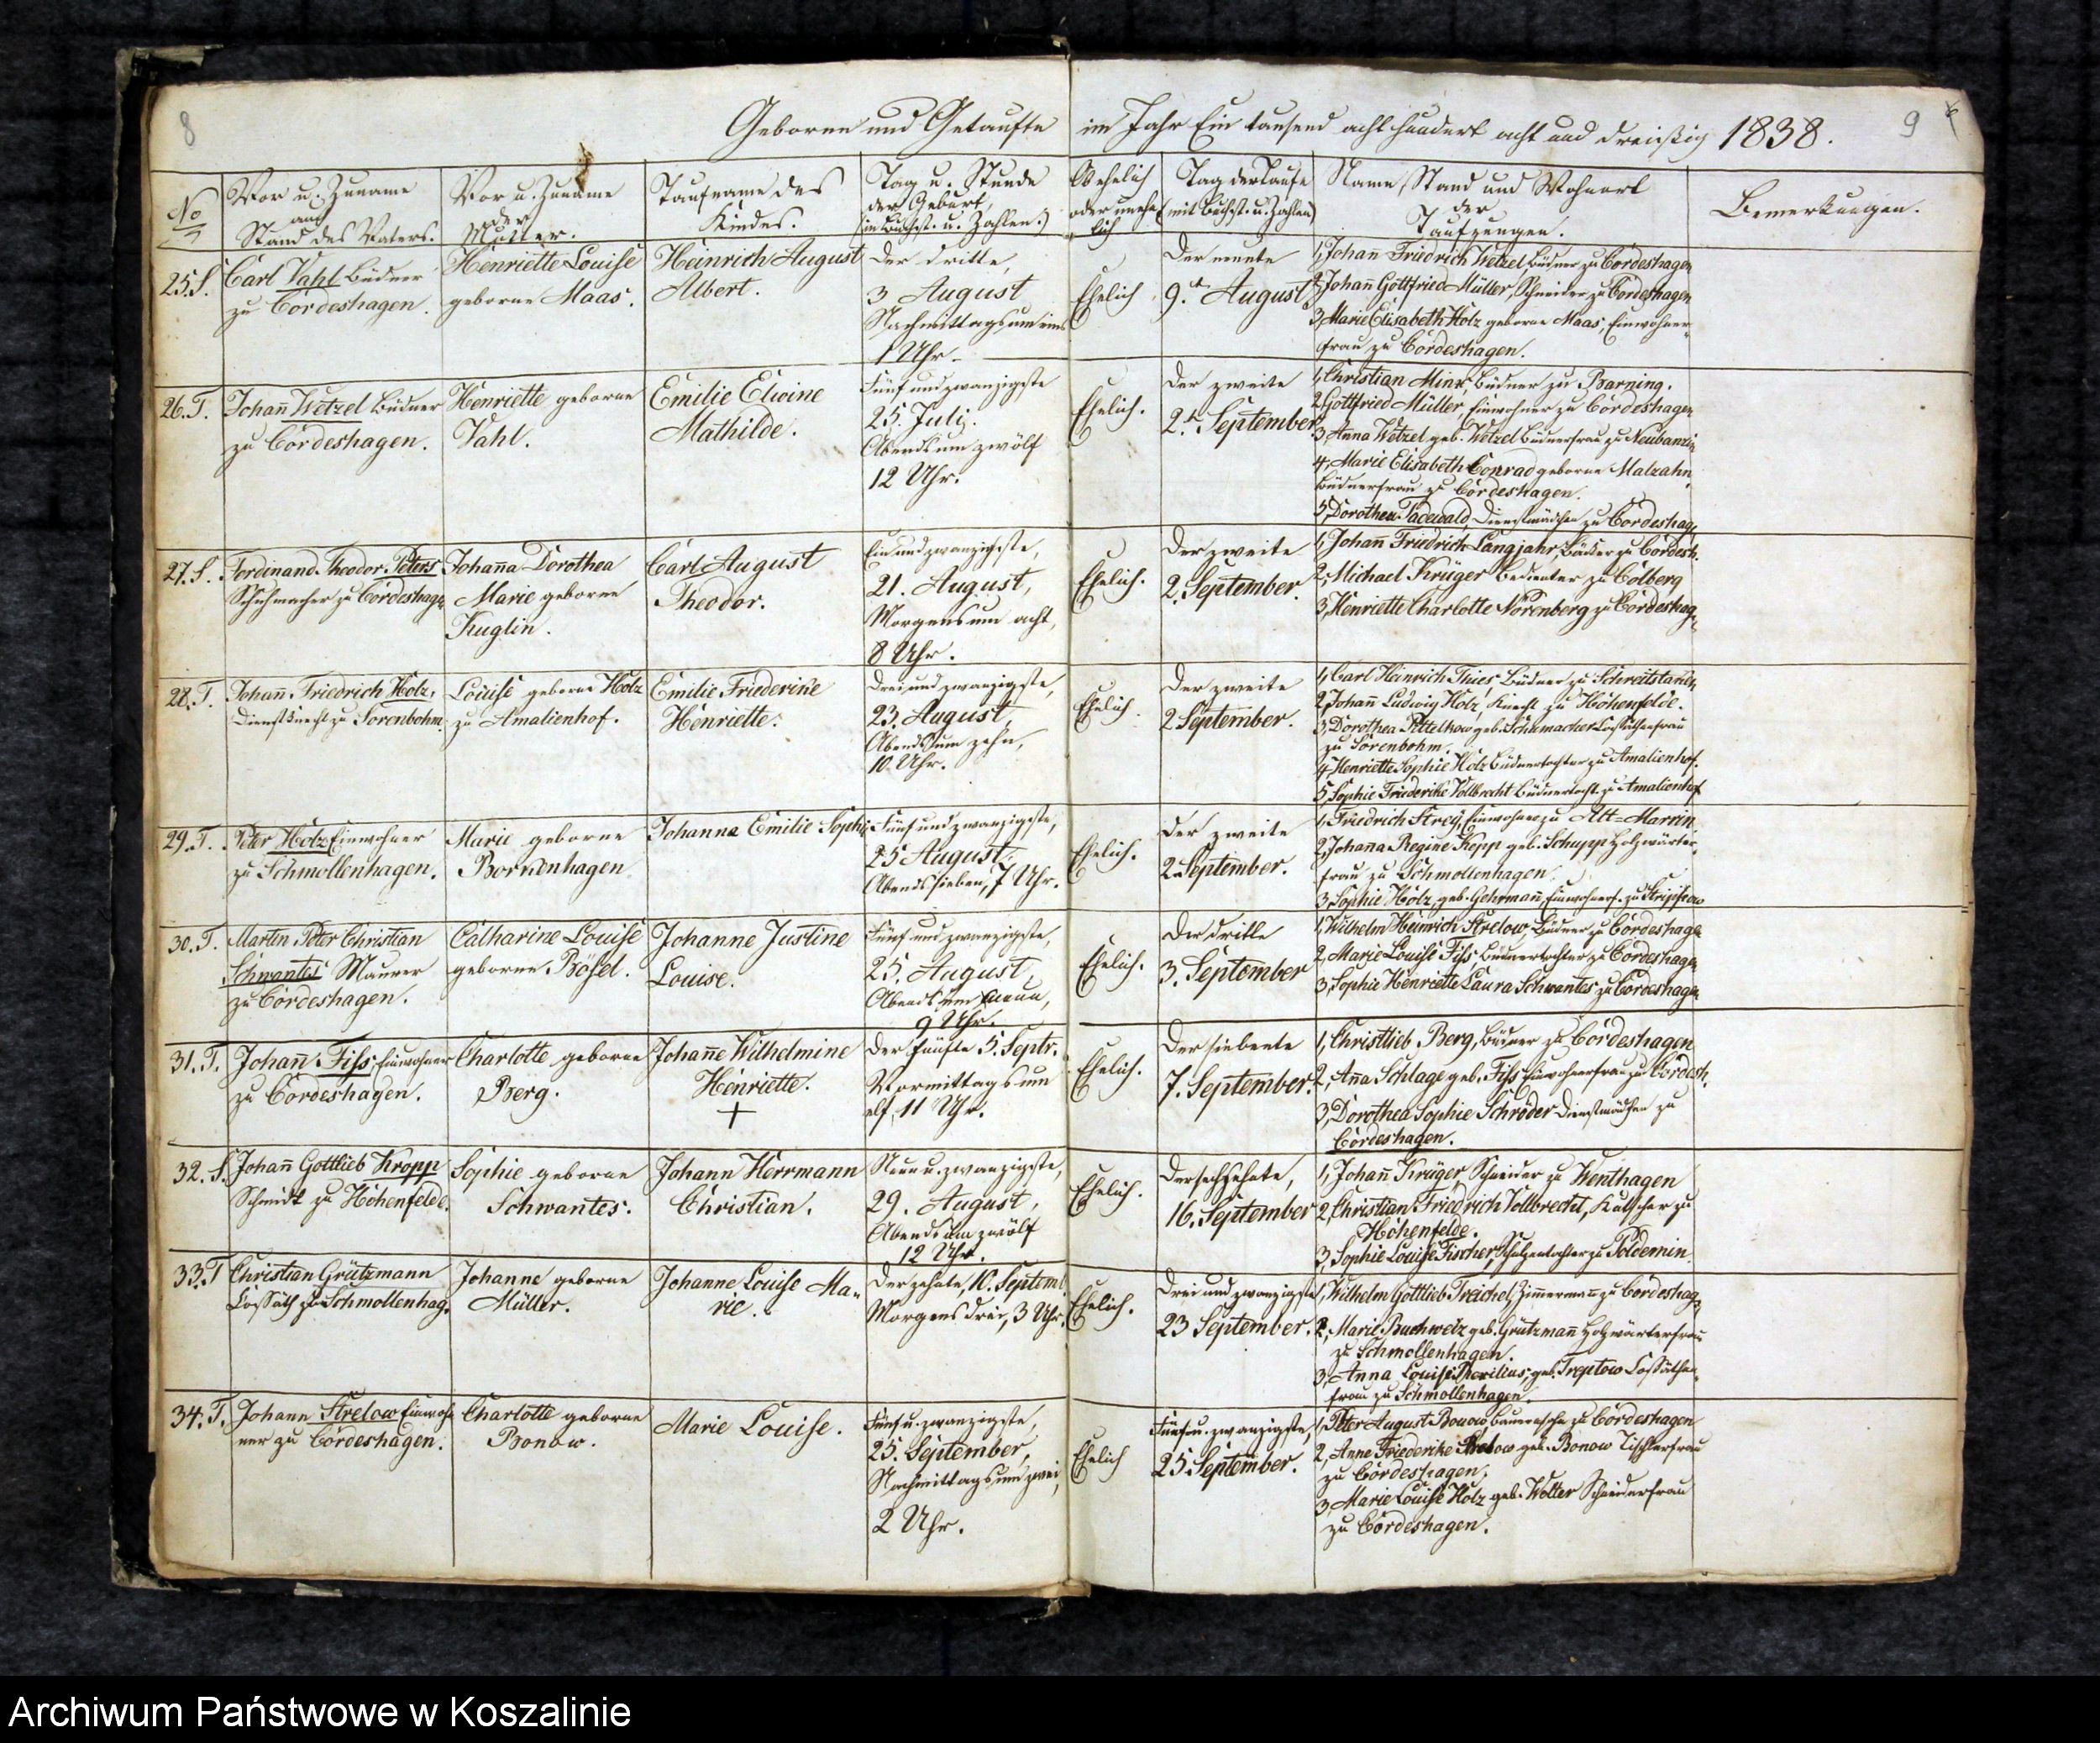 8
Geborene und Getaufte im Jahr Ein tausend acht hundert acht und dreißig 1838.
9
No
Vor u. Zuname
und
Stand des Vaters.
Vor u. Zuname
der
Mutter.
Taufname des
Kindes.
Tag u. Stunde
der Geburt,
(in Buchst. u. Zahlen.)
Ob ehelich
oder unehe-
lich
Tag der Taufe
(mit Buchst. u. Zahlen)
Name, Stand und Wohnort
der
Taufzeugen.
Bemerkungen.
25. S.
Carl Vahl Büdner
zu Cördeshagen.
Henriette Louise
geborne Maas.
Heinrich August
Albert.
Der dritte,
3 August
Nachmittags um eins
1 Uhr.
Ehelich
Der neunte
9. August
1, Johan̄ Friedrich Wetzel Büdner zu Cördeshagen
2, Johan̄ Gottfried Müller, Schneider zu Cördeshagen
3, Marie Elisabeth Holz geborne Maas, Einwohner-
frau zu Cördeshagen.
26. T.
Johan̄ Wetzel Büdner
zu Cördeshagen.
Henriette geborne
Vahl.
Emilie Elwine
Mathilde.
Fünf und zwanzigste
25. Julj.
Abends um zwölf
12 Uhr.
Ehelich.
Der zweite
2. September
1, Christian Mink Büdner zu Barning.
2, Gottfried Müller, Einwohner zu Cördeshagen
3, Anna Wetzel geb. Wetzel Büdnerfrau zu Neubanzin
4, Marie Elisabeth Conrad geborne Malzahn
Büdnerfrau zu Cördeshagen.
5, Dorothea Tadewald, Dienstmädchen zu Cördeshag.
27. S.
Ferdinand Theodor Peters
Schuhmacher zu Cördeshag.
Johan̄a Dorothea
Marie geborne
Kuglin.
Carl August
Theodor.
Ein und zwanzigste,
21. August,
Morgens um acht,
8 Uhr.
Ehelich.
Der zweite
2. September.
1, Johan̄ Friedrich Langjahr, Bäcker zu Cördesh.
2, Michael Krüger Bedienter zu Colberg
3, Henriette Charlotte Nörenberg zu Cördeshag.
28. T.
Johan̄ Friedrich Holz,
Dienstknecht zu Sorenbohm.
Louise geborne Holz
zu Amalienhof.
Emilie Friederike
Henriette.
Drei und zwanzigste,
23. August,
Abends um zehn,
10. Uhr.
Ehelich.
Der zweite
2 September.
1, Carl Heinrich Thies Büdner zu Schreitstaken
2, Johan̄ Ludwig Holz, Knecht zu Hohenfelde.
3, Dorothea Pittelkow geb. Schumacher Cossäthenfrau
zu Sorenbohm.
4, Henriette Sophie Holz Büdnertochter zu Amalienhof.
5, Sophie Friederike Vollbrecht Büdnertocht. zu Amalienhof
29. T.
Peter Holz Einwohner
zu Schmollenhagen.
Marie geborne
Bornenhagen
Johanna Emilie Sophie
Fünf und zwanzigste,
25 August,
Abends sieben, 7 Uhr.
Ehelich.
Der zweite
2. September.
1, Friedrich Strey, Einwohner zu Alt-Marrin
2, Johan̄a Regine Kopp geb. Schupp Holzwärter-
frau zu Schmollenhagen
3, Sophie Holz, geb. Gehrman̄, Einwohnerf. zu Strippow
30. T.
Martin Peter Christian
Schwantes Maurer
zu Cördeshagen.
Catharine Louise
geborne Bösel.
Johanne Justine
Louise.
Fünf und zwanzigste,
25. August,
Abends um neun,
9 Uhr.
Ehelich.
Der dritte
3. September
1, Wilhelm Heinrich Strelow Büdner zu Cördeshagen
2, Marie Louise Fiss, Büdnertochter zu Cördeshagen
3, Sophie Henriette Laura Schwantes zu Cördeshagen
31. T.
Johan̄ Fiss, Einwohner
zu Cördeshagen.
Charlotte geborne
Berg.
Johan̄e Wilhelmine
Henriette.
+
Der fünfte 5. Septr.
Vormittags um
elf, 11 Uhr.
Ehelich.
Der siebente
7. September.
1, Christlieb Berg, Büdner zu Cördeshagen
2, An̄a Schlage geb. Fiss Einwohnerfrau zu Cördesh.
3, Dorothea Sophie Schröder Dienstmädchen zu
Cördeshagen.
32. S.
Johan̄ Gottlieb Kropp
Schmidt zu Hohenfelde.
Sophie geborne
Schwantes.
Johann Herrmann
Christian.
Neun u. zwanzigste,
29. August,
Abends um zwölf
12 Uhr.
Ehelich.
Der sechszehnte,
16. September
1, Johan̄ Krüger, Schneider zu Wenthagen
2, Christian Friedrich Vollbrecht, Kutscher zu
Hohenfelde.
3, Sophie Louise Fischer, Schulzentochter zu Poldemin
33. T
Christian Grützmann
Cossäth zu Schmollenhag.
Johanne geborne
Müller.
Johanne Louise Ma-
rie.
Der zehnte, 10. Septemb.
Morgens drei, 3 Uhr.
Ehelich.
Drei und zwanzigste
23 September.
1, Wilhelm Gottlieb Treichel, Zimmerman̄ zu Cördeshag.
2, Marie Buchwelz geb. Grützman̄ Holzwärterfrau
zu Schmollenhagen.
3, Anna Louise geb. Treptow Cossäthen-
frau zu Schmollenhagen.
34. T.
Johann Strelow Einwoh-
ner zu Cördeshagen.
Charlotte geborne
Bonow.
Marie Louise.
Fünf u. zwanzigste,
25. September,
Nachmittags um zwei,
2 Uhr.
Ehelich
Fünf u. zwanzigste,
25 September.
1, Peter August Bonow Bauernsohn zu Cördeshagen
2, Anne Friederike Strelow geb. Bonow Tischlerfrau
zu Cördeshagen,
3, Marie Louise Holz geb. Wolter Schneiderfrau
zu Cördeshagen.
Archiwum Państwowe w Koszalinie